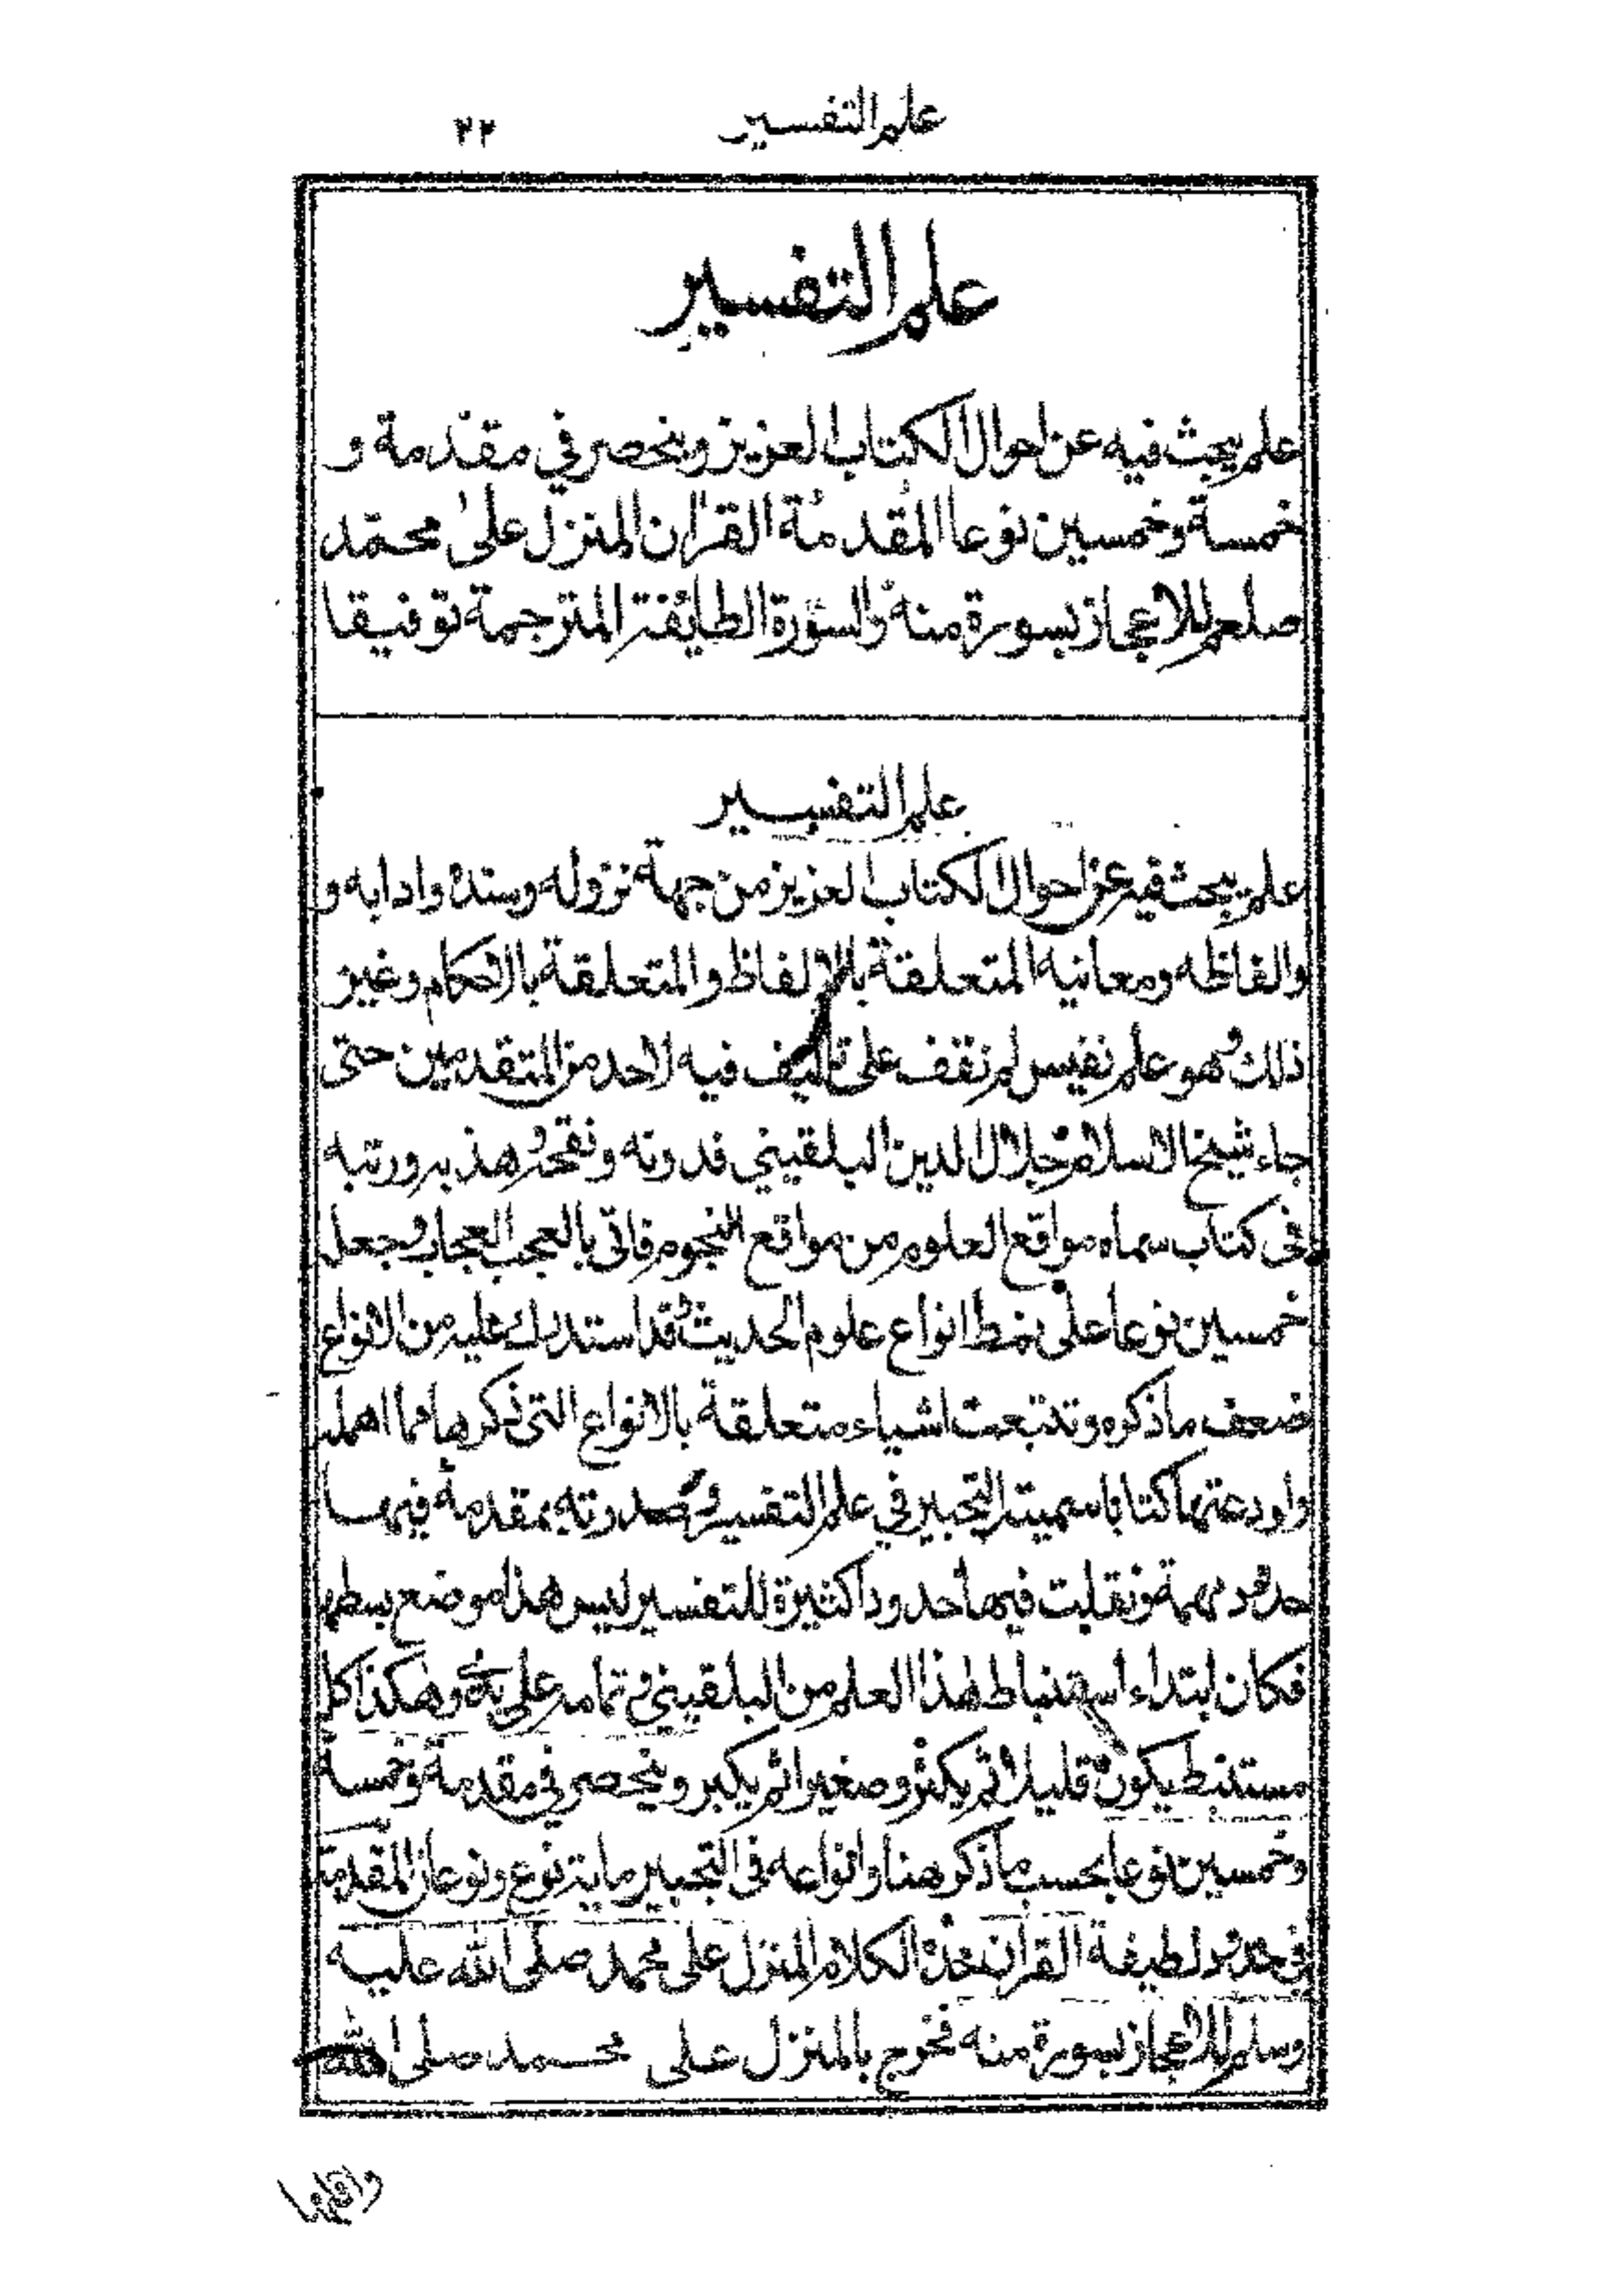 علم التفسير ٢٢
علم التفسير
علم يبحث فيه عن احوال الكتاب العزيز وينحصر في مقدمة و
خمسة وخمسين نوعا المقدمة القران المنزل على محمّد
صلعم للاعجاز بسورة منه والسورة الطايفة المترجمة توفيقا
علم التفسير
علم يبحث فيه عن احوال الكتاب العزيز من جهة نزوله وسنده وادابه و
والفاظه ومعانيه المتعلقة بالالفاظ والمتعلقة بالاحكام وغير
ذلك وهو علم نفيس لم نقف على تاليف فيه لاحد من المتقدمين حتى
جاء شيخ الاسلام جلال الدين البلقيني فدونه ونقحه وهذبه ورتبه
في كتاب سماه مواقع العلوم من مواقع النجوم فاتى بالعجب العجاب وجعل
خمسين نوعا على نمط انواع علوم الحديث وقد استدركت عليه من الانواع
ضعف ما ذكره وتتبعت اشياء متعلقة بالانواع التي ذكرها مما اهمله
واودعتها كتابا سميته التحبير في علم التفسير وصدرته بمقدمة فيها
حدود مهمة ونقلت فيها حدودا كثيرة للتفسير ليس هذا موضع بسطها
فكان ابتداء استنباط هذا العلم من البلقيني وتمامه على يدي وهكذا كل
مستنبط يكون قليلا ثم يكثر وصغيرا ثم يكبر وينحصر في مقدمة وخمسة
وخمسين نوعا بحسب ما ذكر هنا وانواعه في التحبير ماية نوع ونوعان المقدمة
في حدود لطيفة القران حده الكلام المنزل على محمد صلى الله عليه
وسلم للاعجاز بسورة منه فخرج بالمنزل على محمد صلى الله